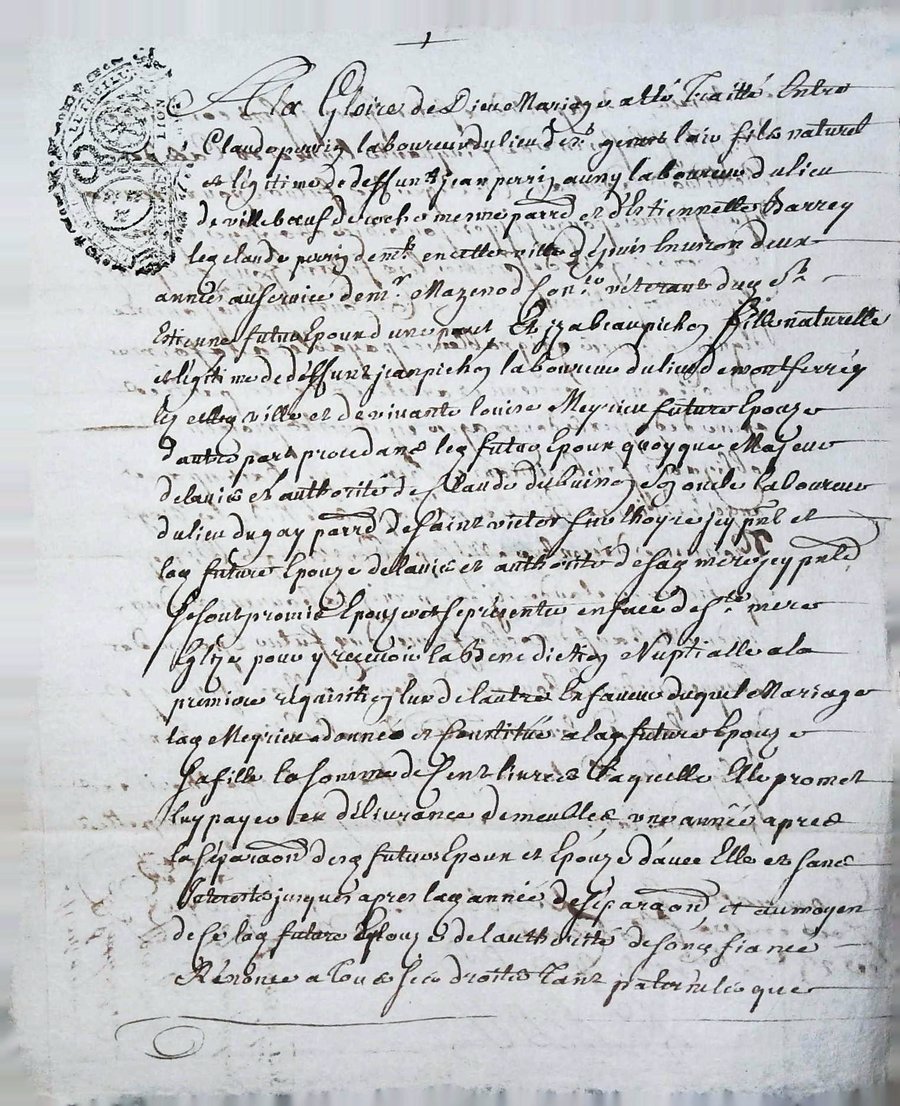 LION
A la Gloire de Dieu Mariage a ete Traitté Entre
Claude perrin laboureur du lieu de st. genest fils naturel
et legitime de deffunt jean perrin laboureur du lieu
de villebœuf de parrd et d'Estiennette Barrey
led claude perrin demt en cette ville depuis Environ deux
années au service de mr. Mazenod vétérant du st
Estienne futur Epoux d'une part Et Izabeau pichon fille naturelle
et légitime de deffunt jean pichon laboureur du lieu de montferré
les ville et de vivante louise Meyrieu future Epouze
d'autre part procedans led futur Epoux quoyque Majeur
de lavis et authorité de Claude son oncle laboureur
du lieu du gay parrd de saint victor sur lhoyre icy pnt et
lad future Epouze de lavis et authorité de sad mere icy pnte
Se sont promis Epouzer et se présenter en face de ste. mere
Eglize pour y recevoir la Bénédiction Nuptialle a la
premiere réquisition lun de lautre En faveur duquel Mariage
lad Meyrieu a donnée et Constitué a lad future Epouze
sa fille la somme de Cent livres Laquelle Elle promet
luy payer en délivrance de meubles une année apres
la séparaon desd futurs Epoux et Epouze d'avec Elle et sans
Interests jusques apres lad année de séparaon, et au moyen
de ce lad future Epouze de lauthorité de sond fiancé
Rénonce a tous ses droits Tant paternels que